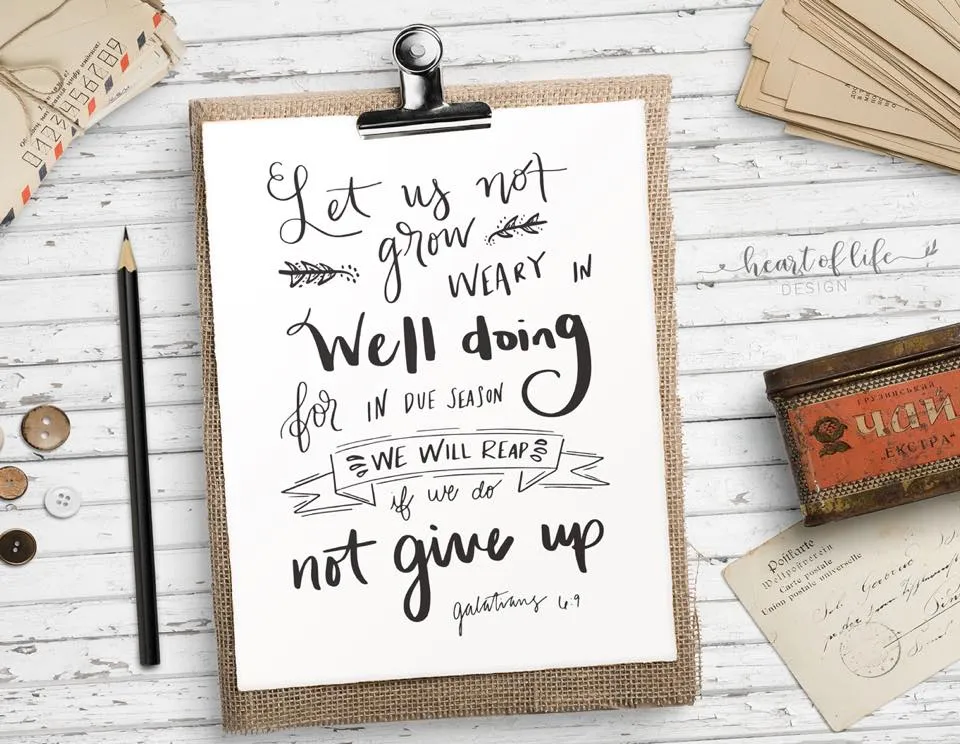 0123456789
Let us not
grow
WEARY IN
Well doing
for IN DUE SEASON
WE WILL REAP
if we do
not give up
galatians 6:9
heart of life
DESIGN
ГРУЗИНСЬКИЙ
ЧАЙ
„ЕКСТРА"
Postkarte
Weltpostverein
Carte postale
Union postale universelle